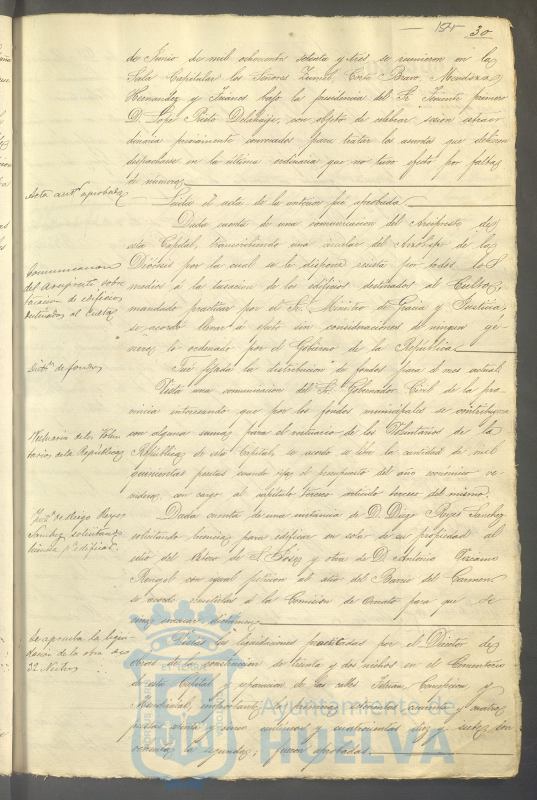 30
de Junio de mil ochocientos setenta y tres se reunieron en la
Sala Capitular los Señores Bravo, Mendoza
Hernandez y bajo la presidencia del Sr. Teniente primero
D. Lope Prieto con objeto de celebrar sesion estraor
dinaria previamente convocados para tratar los asuntos que debieron
despacharse en la última ordinaria que no tuvo efecto por falta
de número
Acta antr. aprobada
Leida el acta de la anterior fué aprobada
Dada cuenta de una comunicacion del Arcipreste de
esta Capital, transcribiendo una circular del Arzobispo de la
Comunicacion
del Arcipreste sobre
tasacion de edificios
destinados al Culto
Diócesis por la cual se le dispone resista por todos los
medios á la tasacion de los edificios destinados al Culto
mandado practicar por el Sr. Ministro de Gracia y Justicia,
se acordó llevar á efecto sin consideraciones de ningun gé-
nero lo ordenado por el Gobierno de la República
Distn. de fondos
Fué fijada la distribucion de fondos para el mes actual.
Vista una comunicacion del Sr. Gobernador Civil de la pro
vincia interesando que por los fondos municipales se contribuya
Vestuario de los Volun
tarios de la República
con alguna suma para el vestuario de los Voluntarios de la
República de esta Capital, se acordó se libre la cantidad de mil
quinientas pesetas cuando rija el presupuesto del año económico ve-
nidero, con cargo al capítulo tercero artículo tercero del mismo.
de Diego Reyes
Sanchez solicitando
licencia pa. edificar
Dada cuenta de una instancia de D. Diego Reyes Sanchez
solicitando licencia para edificar en solar de su propiedad al
sitio del de S. José y otra de D. Antonio
Rengel con igual peticion al sitio del Barrio del Carmen
se acordó remitirlas á la Comision de Ornato para que se
sirva dictamen
Se aprueba la liqui
dacion de la obra de
32 Nichos
Vistas las liquidaciones practicadas por el Director de
obras de la construccion de treinta y dos nichos en el Cementerio
de esta Capital y reparacion de las calles Concepcion y
importante la primera ochocientas cuarenta y cuatro
pesetas céntimos y cuatrocientas diez y siete
céntimos la segunda; fueron aprobadas.
Ayuntamiento de
HUELVA